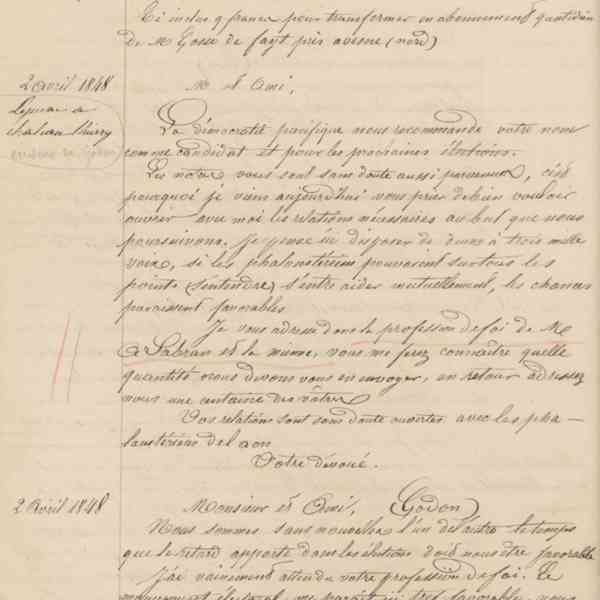 Ci inclus 9 francs pour transformer en abonnement quotidien
De Mr Gosse de fayt près avesne (nord)
2 avril 1848
Mr et Ami,
Lejeune à
chateau thierry
La démocratie pacifique nous recommande votre nom
comme candidat et pour les prochaines élections.
Les notres vous sont sans doute aussi parvenus, c'est
pourquoi je viens aujourd'hui vous prier de bien vouloir
ouvrir avec moi les relations nécessaires au but que nous
poursuivons. Je pense ici disposer de deux à trois mille
voix, si les phalanstériens pouvaient sur tous les
points s'entendre, s'entre aider mutuellement, les chances
paraissent favorables
Je vous adresse donc la profession de foi de Mr
A Sabran et la mienne, vous me ferez connaître quelle
quantité nous devons vous en envoyer, en retour adressez
nous une centaine des vôtres
Vos relations sont sans doute ouvertes avec les pha—
lanstériens de Laon
Votre dévoué.
2 Avril 1848
Monsieur et Ami, Godon
Nous sommes sans nouvelles l'un de l'autre le temps
que le retard apporte dans les élections doit nous être favorable
J'ai vainement attendu votre profession de foi. Le
mouvement électoral me parait ici très favorable, nous